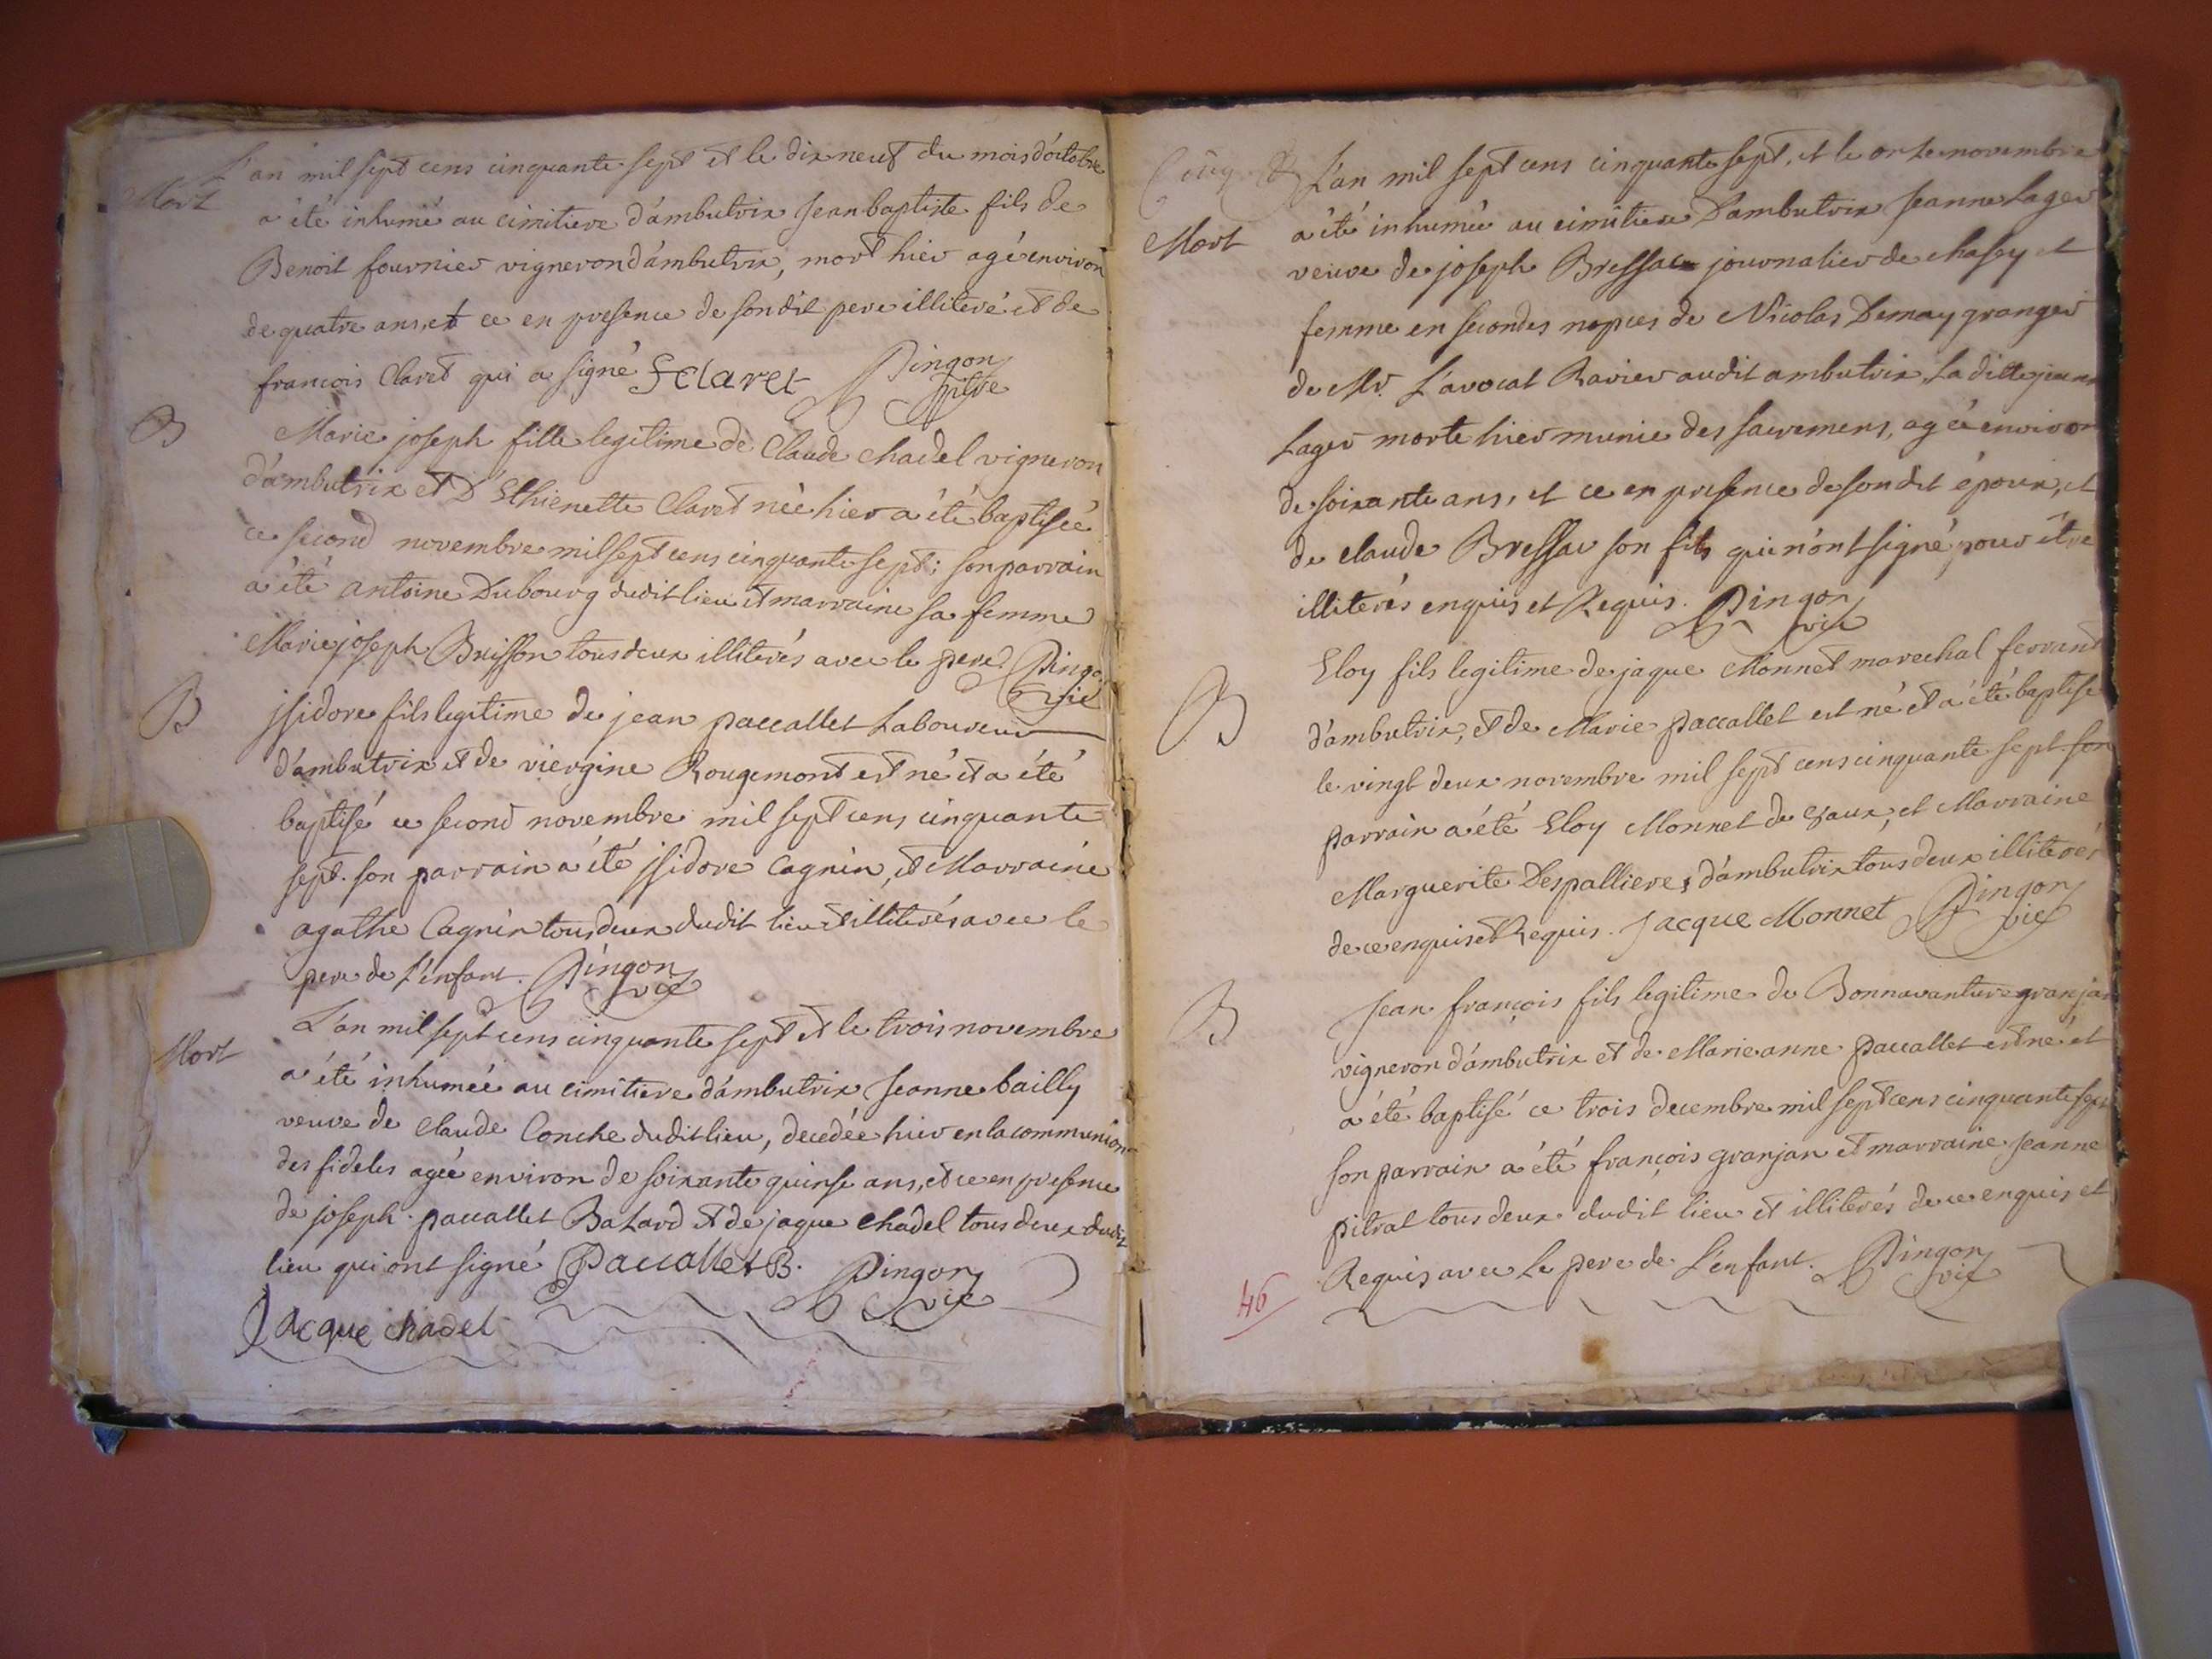 L'an mil sept cens cinquante sept et le dix neuf du mois d'octobre
Mort
a été inhumé au cimitiere d'ambutrix Jean baptiste fils de
Benoit fournier vigneron d'ambutrix, mort hier agé environ
de quatre ans et ce en presence de sondit pere illiteré et de
francois Claret qui a signé F Claret Pingon
ptre
B
Marie joseph fille legitime de Claude Chadel vigneron
d'ambutrix et D'Ethienette Claret née hier a été baptisée
ce second novembre mil sept cens cinquante sept; son parrain
a été antoine Dubourg dudit lieu et marraine sa femme
Marie joseph Brisson tous deux illiterés avec le pere Pingo
vic
B
jsidore fils legitime de jean paccallet Laboureur
d'ambutrix et de viergine Rougemont est né et a été
baptisé ce second novembre mil sept cens cinquante
sept. son parrain a été jsidore Cagnin, et Marraine
agathe Cagnin tous deux dudit lieu et illiterés avec le
pere de L'enfant. Pingon
vic
L'an mil sept cens cinquante sept et le trois novembre
Mort
a été inhumée au cimitiere d'ambutrix Jeanne bailly
veuve de Claude Conche dudit lieu, decedée hier en la communion
des fideles agée environ de soixante quinse ans, et ce en presence
de joseph paccallet Batard et de jaque Chadel tous deux dudit
lieu qui ont signé Paccallet B. Pingon
vic
Jacque chadel
L'an mil sept cens cinquante sept, et le onze novembre
Mort
a été inhumée au cimitiere D'ambutrix Jeanne Lager
veuve de joseph Bressac journalier de chasey et
femme en secondes nopces de Nicolas Demay granger
de Mr. L'avocat Ravier audit ambutrix, La ditte jeanne
Lager morte hier munie des sacremens, agée environ
de soixante ans, et ce en presence de son dit époux, et
de claude Bressac son fils qui n'ont signé pour être
illiterés enquis et Requis. Pingon
vic
B
Eloy fils legitime de jaque Monnet marechal ferrant
d'ambutrix, et de Marie paccallet est né et a été baptisé
le vingt deux novembre mil sept cens cinquante sept son
parrain a été Eloy Monnet de vaux, et Marraine
Marguerite Despallieres d'ambutrix tous deux illiterés
de ce enquis et Requis. Jacque Monnet Pingon
vic
B
Jean françois fils legitime de Bonnavanture granjan
vigneron d'ambutrix et de Marie anne paccallet est né et
a été baptisé ce trois decembre mil sept cens cinquante sept
son parrain a été françois granjan et marraine Jeanne
pitrat tous deux dudit lieu et illiterés de ce enquis et
Requis avec Le pere de L'enfant. Pingon
vic
46